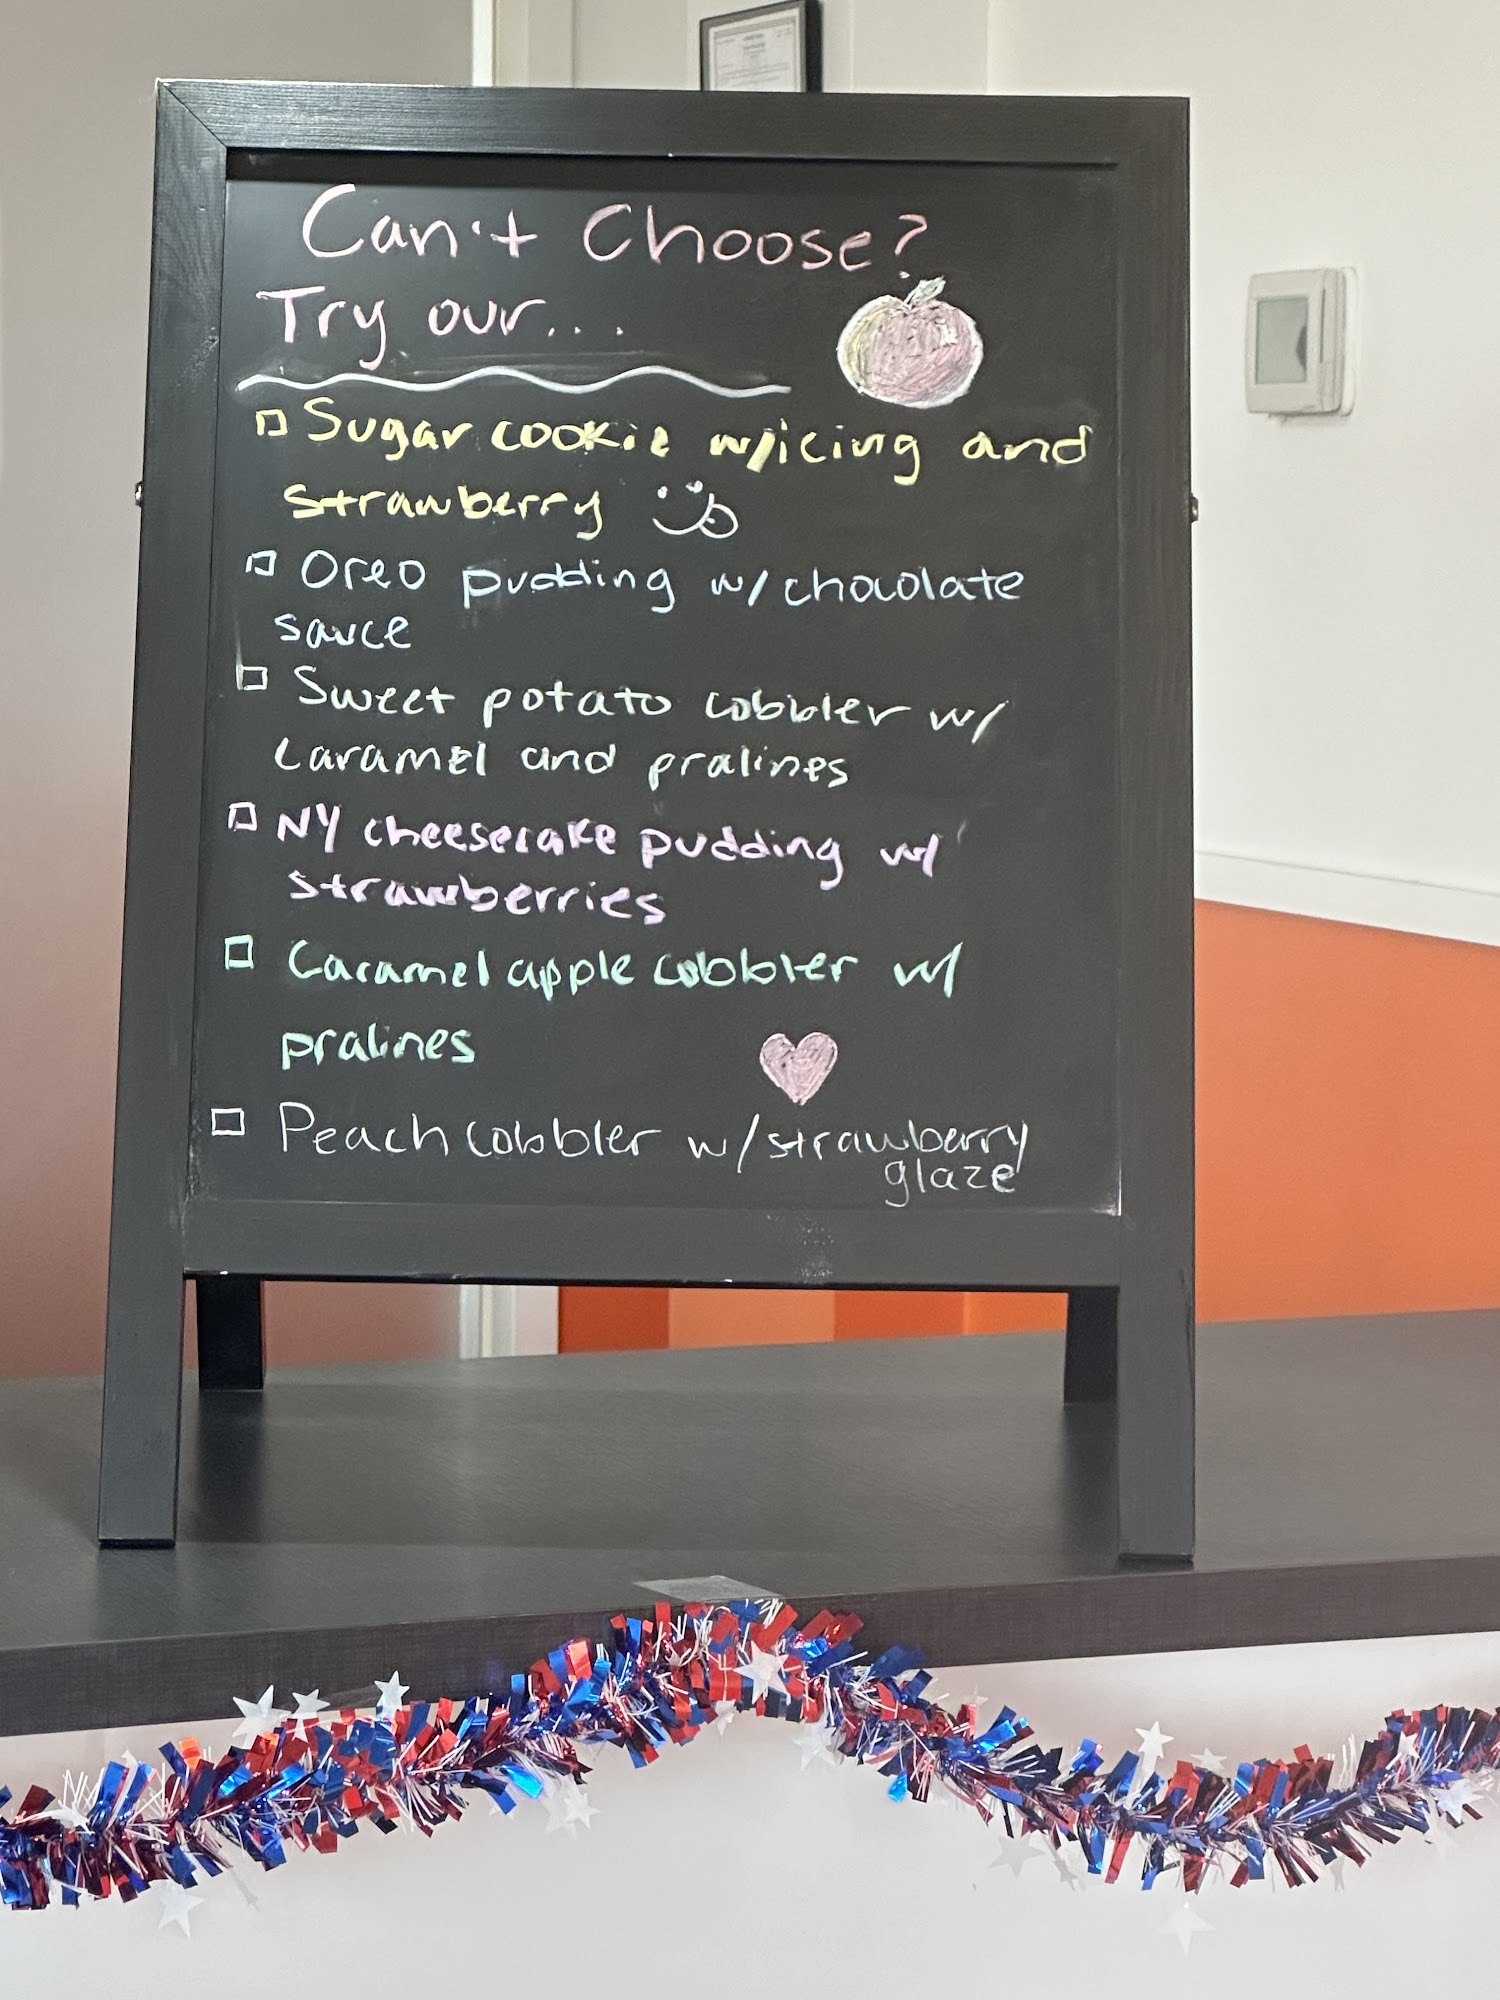 Can't Choose?
Try our...
Sugar cookie w/icing and
strawberry
Oreo pudding w/chocolate
sauce
Sweet potato cobbler w/
caramel and pralines
NY cheesecake pudding w/
strawberries
Caramel apple cobbler w/
pralines
Peach cobbler w/strawberry
glaze